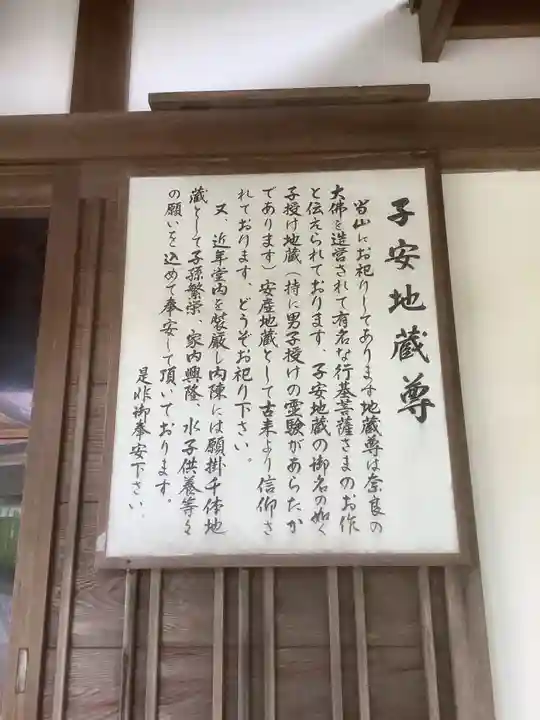 子安地蔵尊
当山にお祀りしてあります地蔵尊は奈良の
大佛を造営されて有名な行基菩薩さまのお作
と伝えられております、子安地蔵の御名の如く
子授け地蔵(持に男子授けの霊験があらたか
であります)安産地蔵として古来より信仰さ
れております、どうぞお祀り下さい。
又、近年堂内を装厳し内陳には願掛千体地
蔵として子孫繁栄、家内興隆、水子供養等々
の願いを込めて奉安して頂いております。
是非御奉安下さい。